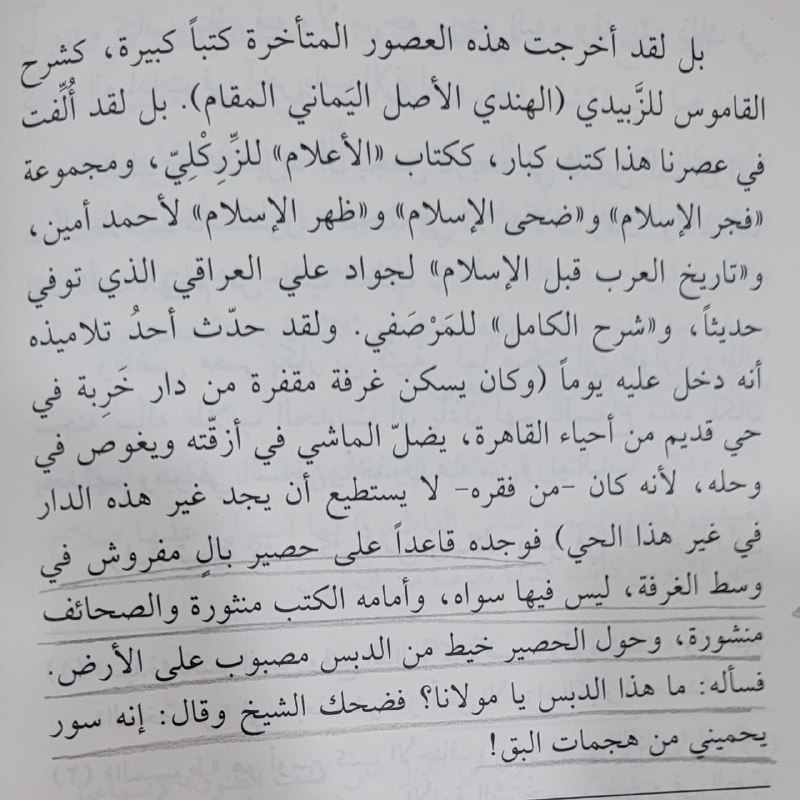 بل لقد أخرجت هذه العصور المتأخرة كتباً كبيرة، كشرح
القاموس للزَّبيدي (الهندي الأصل اليَماني المقام). بل لقد أُلِّفت
في عصرنا هذا كتب كبار، ككتاب «الأعلام» للزِّرِكْلِيّ، ومجموعة
«فجر الإسلام» و«ضحى الإسلام» و«ظهر الإسلام» لأحمد أمين،
و«تاريخ العرب قبل الإسلام» لجواد علي العراقي الذي توفي
حديثاً، و«شرح الكامل» للمَرْصَفي. ولقد حدّث أحدُ تلاميذه
أنه دخل عليه يوماً (وكان يسكن غرفة مقفرة من دار خَرِبة في
حي قديم من أحياء القاهرة، يضلّ الماشي في أزقّته ويغوص في
وحله، لأنه كان -من فقره- لا يستطيع أن يجد غير هذه الدار
في غير هذا الحي) فوجده قاعداً على حصير بالٍ مفروش في
وسط الغرفة، ليس فيها سواه، وأمامه الكتب منثورة والصحائف
منشورة، وحول الحصير خيط من الدبس مصبوب على الأرض.
فسأله: ما هذا الدبس يا مولانا؟ فضحك الشيخ وقال: إنه سور
يحميني من هجمات البق!